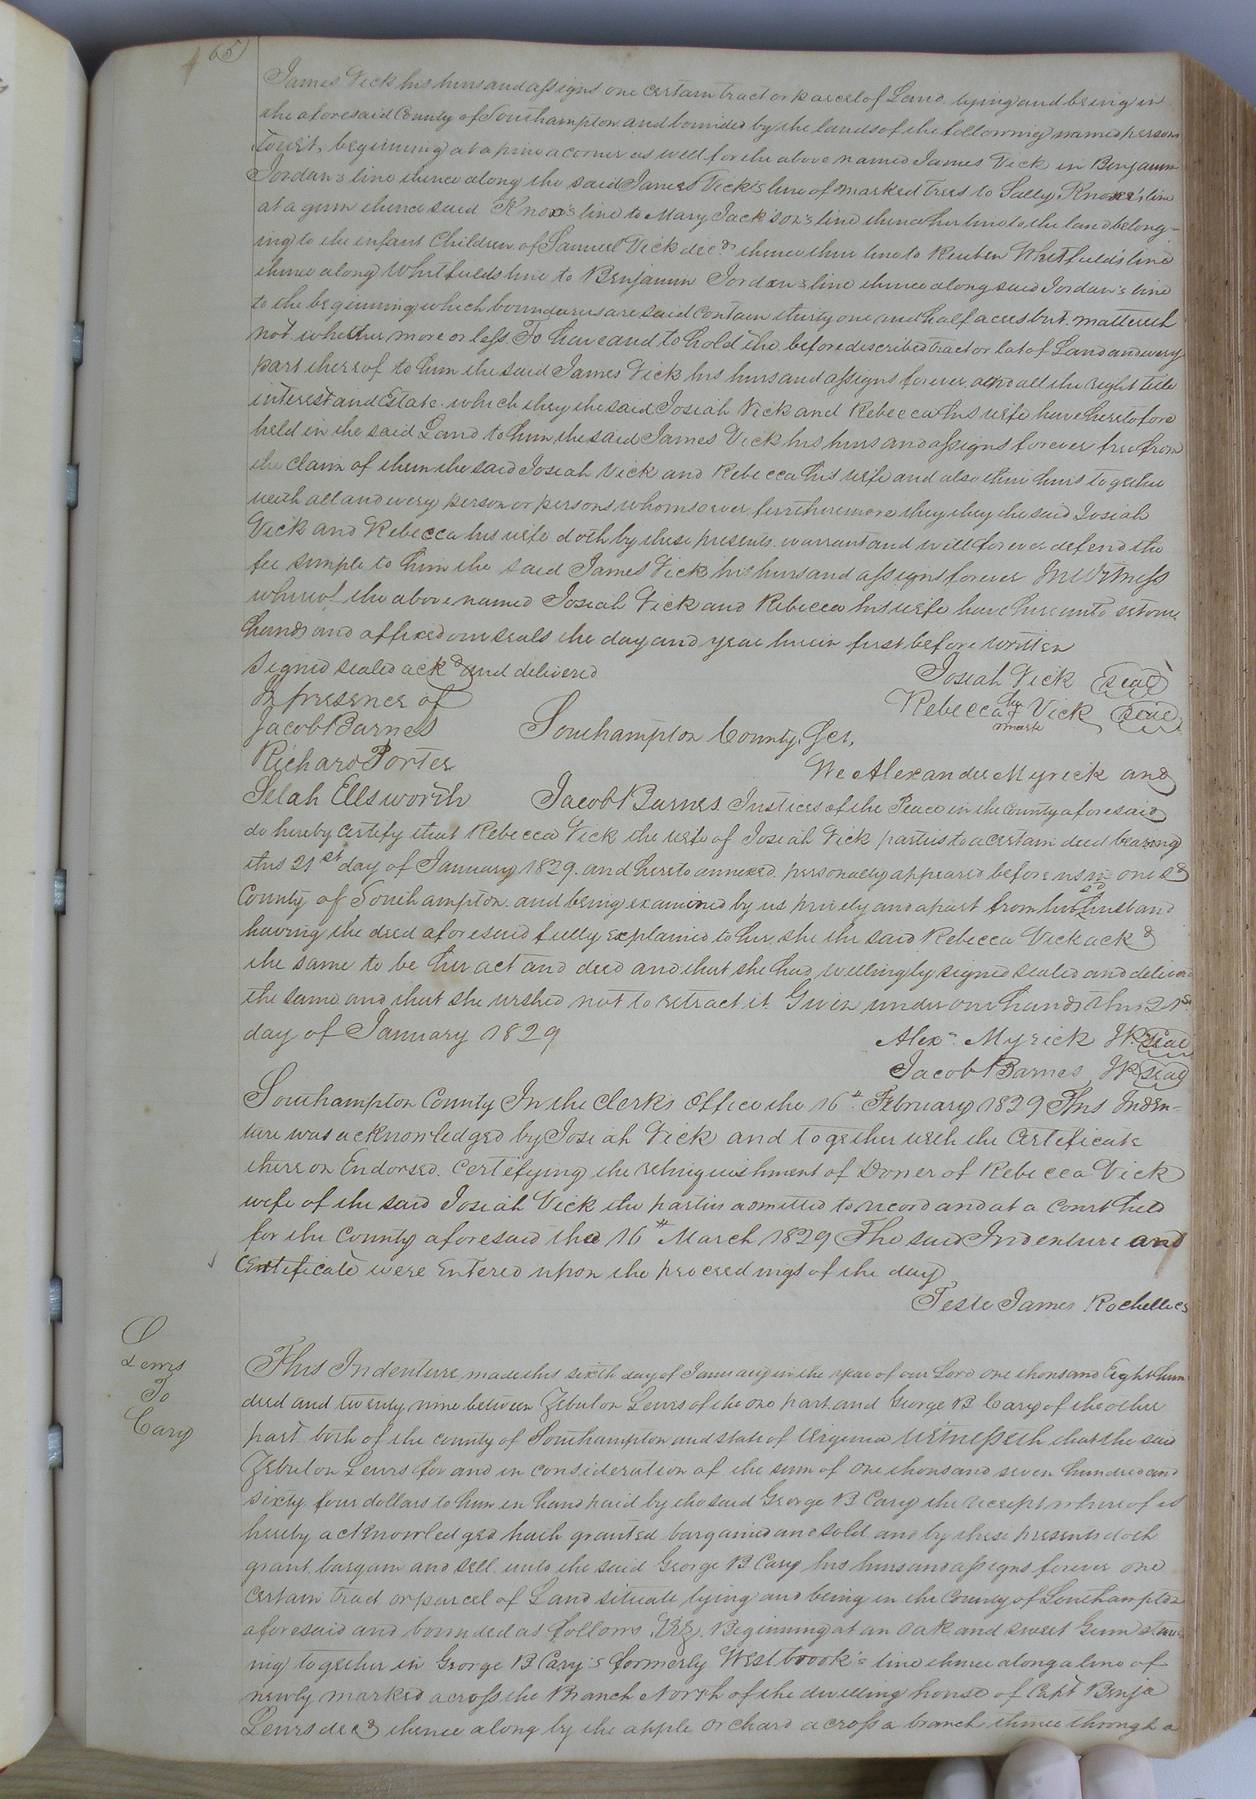 65
James Vick his heirs and assigns one certain tract or parcel of Land lying and being in
the aforesaid County of Southampton and bounded by the lands of the following named persons
Towit, beginning at a pine a corner as well for the above named James Vick in Benjamin
Jordan's line thence along the said James Vick's line of marked trees to Sally Knox's line
at a gum thence said Knox's line to Mary Jack'son's line thence her line to the land belong-
ing to the infant Children of Samuel Vick decd. thence their line to Reuben Whitfield's line
thence along Whitfields line to Benjamin Jordan's line thence along said Jordan's line
to the beginning which boundaries are said contain thirty one and half acres but mattereth
not whether more or less To have and to hold the before described tract or lot of Land and every
part thereof to him the said James Vick his heirs and assigns forever and all the right title
interest and Estate which they the said Josiah Vick and Rebecca his wife have heretofore
held in the said Land to him the said James Vick his heirs and assigns forever free from
the claim of them the said Josiah Vick and Rebecca his wife and also their heirs together
with all and every person or persons whomsoever furthermore they they the said Josiah
Vick and Rebecca his wife doth by these presents warrant and will forever defend the
fee simple to him the said James Vick his heirs and assigns forever In Witness
whereof the above named Josiah Vick and Rebecca his wife have hereunto set our
hands and affixed our seals the day and year herein first before written
Signed sealed ackd and delivered
Josiah Vick seal
In presence of
Rebecca her mark Vick seal
Jacob Barnes
Southampton County, Sct.
Richard Porter
We Alexander Myrick and
Selah Ellsworth
Jacob Barnes Justices of the Peace in the County aforesaid
do hereby certify that Rebecca Vick the wife of Josiah Vick parties to a certain deed bearing
this 21st day of January 1829 and hereto annexed personally appeared before us in our sd
County of Southampton and being examined by us privily and apart from her sd husband
having the deed aforesaid fully explained to her she the said Rebecca Vick ackd
the same to be her act and deed and that she had willingly signed sealed and delivered
the same and that she wished not to retract it Given under our hands this 21st
day of January 1829
Alexr. Myrick JP seal
Jacob Barnes JP seal
Southampton County In the Clerks Office the 16th February 1829 This Inden-
ture was acknowledged by Josiah Vick and together with the Certificate
thereon Endorsed Certifying the relinquishment of Dower of Rebecca Vick
wife of the said Josiah Vick the parties admitted to record and at a Court held
for the County aforesaid the 16th March 1829 The said Indenture and
Certificate were Entered upon the proceedings of the day
Teste James Rochelle cs
Lewis
To
Cary
This Indenture made this sixth day of January in the year of our Lord one thousand Eight hun
dred and twenty nine between Zebulon Lewis of the one part and George B Cary of the other
part both of the county of Southampton and state of Virginia Witnesseth that the said
Zebulon Lewis for and in consideration of the sum of one thousand seven hundred and
sixty four dollars to him in hand paid by the said George B Cary the receipt whereof is
hereby acknowledged hath granted bargained and sold and by these presents doth
grant bargain and sell unto the said George B Cary his heirs and assigns forever one
certain tract or parcel of Land situate lying and being in the County of Southampton
aforesaid and bounded as follows Viz. Beginning at an oak and sweet Gum stan
ning together in George B Cary's formerly Westbrook's line thence along a line of
newly marked across the Branch North of the dwelling house of Capt Benja
Lewis decd thence along by the apple orchard across a branch thence through a